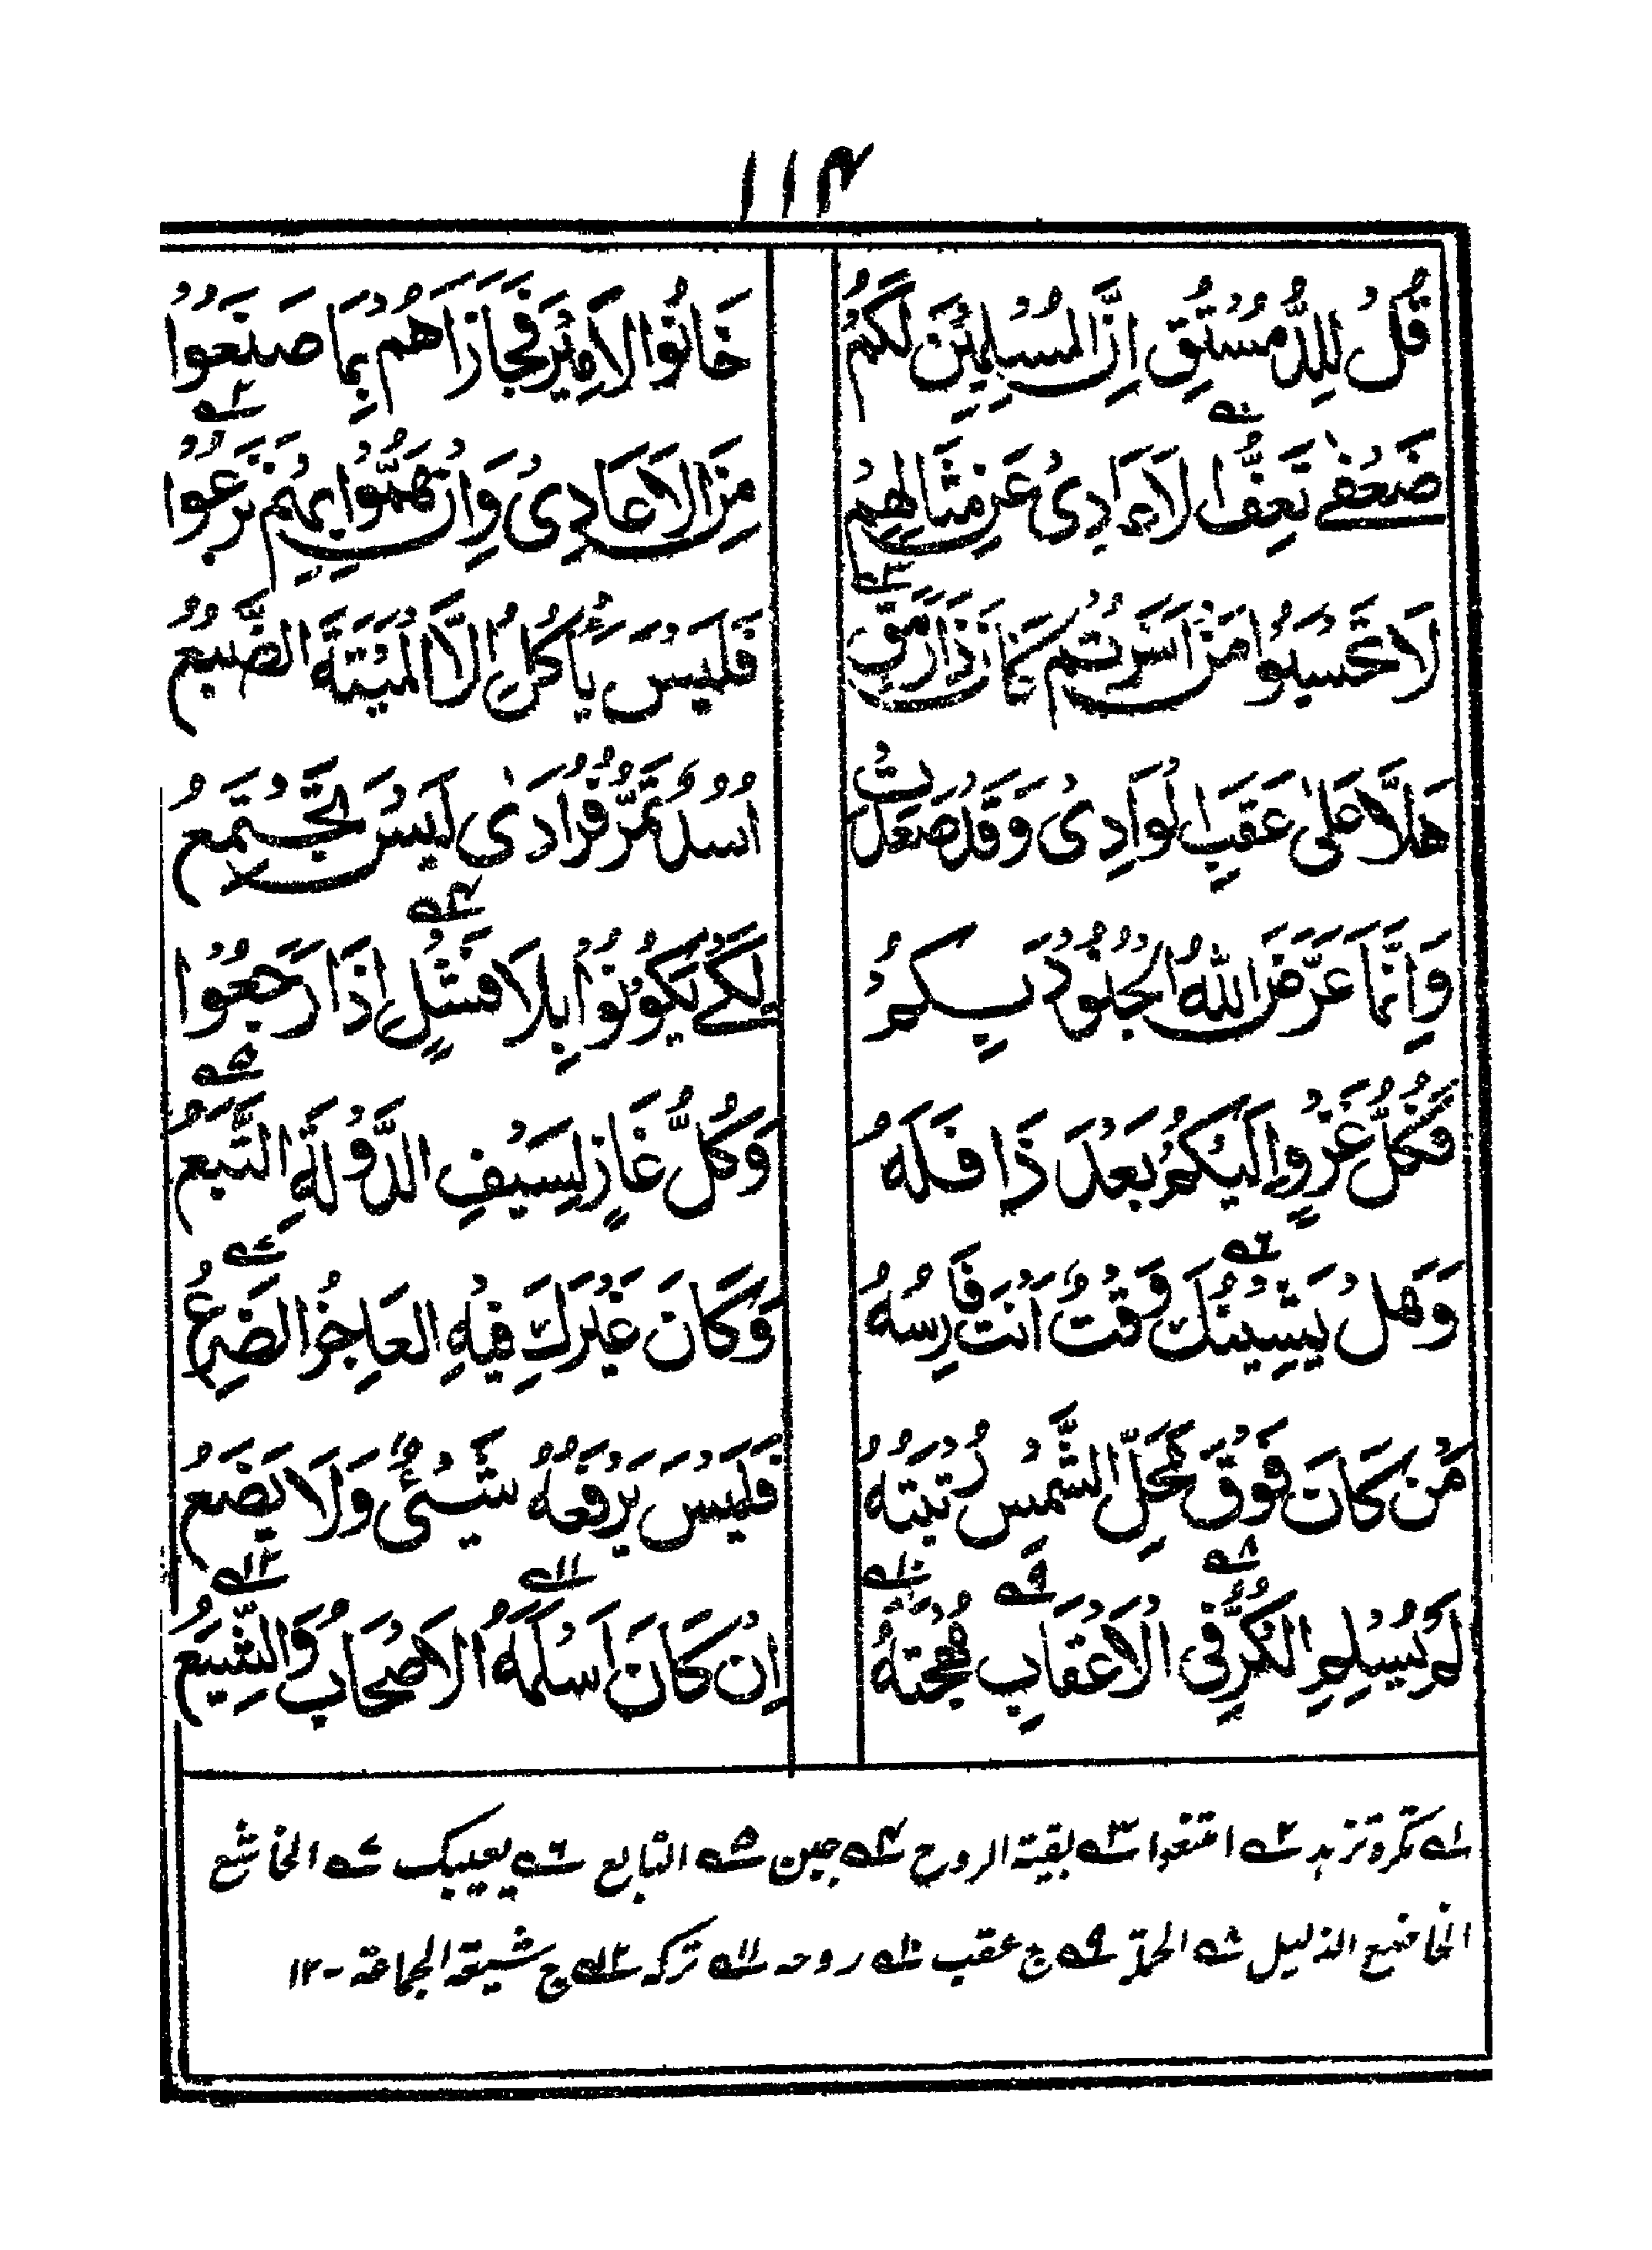 ۱۱۴
قُلْ لِلدُّمُسْتُقِ اِنَّ الْمُسْلِمِيْنَ لَكُمُ خَانُوا الْاَمِيْرَ فَجَازَاهُمْ بِمَا صَنَعُوْا
ضَعْفٰے تَعِفُّ الْاَ يَادِىْ عَنْ مِثَالِهِمْ مِنَ الْاَعَادِىْ وَاِنْ هَمُّوْا بِهِمْ نَزَعُوْا
لَا تَحْسِبُوْا مَنْ اَسَرْتُمْ كَانَ ذَا رَمَقٍ فَلَيْسَ يَأْكُلُ اِلَّا الْمَيْتَةَ الضَّبُعُ
هَلَّا عَلٰى عَقَبِ الْوَادِىْ وَقَدْ صَعِدَتْ اُسْدٌ تَمُرُّ فُرَادٰى لَيْسَ تَجْتَمِعُ
وَاِنَّمَا عَرَّضَ اللّٰهُ الْجُنُوْدَ بِكُمْ لِكَےْ يَكُوْنُوْا بِلَا فَشْلٍ اِذَا رَجَعُوْا
فَكُلُّ غَزْوٍ اِلَيْكُمْ بَعْدَ ذَا فَلَهٗ وَكُلُّ غَازٍ لِسَيْفِ الدَّوْلَةِ التَّبَعُ
وَهَلْ يَشِيْنُكَ وَقْتٌ اَنْتَ فَارِسُهٗ وَكَانَ غَيْرَكَ فِيْهِ الْعَاجِزُ الضَّرِعُ
مَنْ كَانَ فَوْقَ مَحَلِّ الشَّمْسِ رُتْبَتُهٗ فَلَيْسَ يَرْفَعُهٗ شَيْئٌ وَلَا يَضَعُ
لَمْ يُسْلِمِ الْكَرُّ فِى الْاَعْقَابِ مُهْجَتَهٗ اِنْ كَانَ اَسْلَمَهُ الْاَصْحَابُ وَالشِّيَعُ
۱؎ تكره تزهد ۲؎ امتنعوا ۳؎ بقية الروح ۴؎ جبن ۵؎ التابع ۶؎ يعيبك ۷؎ الخاشع
الخاضع الذليل ۸؎ الحملة ۹؎ ج عقب ۱۰؎ روحه ۱۱؎ تركه ۱۲؎ ج شيعة الجماعة - ۱۲